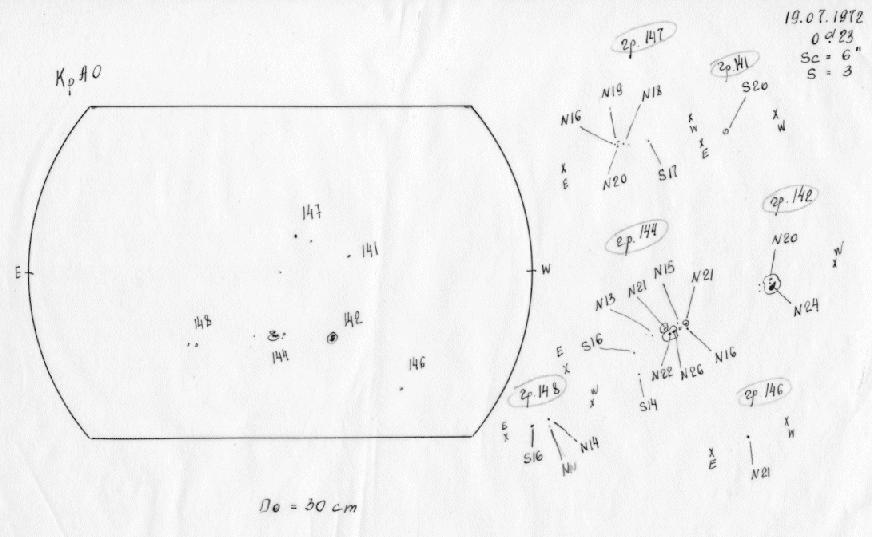 19.07.1972
Sc = 6"
S = 3
КрАО
гр. 147
гр. 141
N19
N18
S20
N16
W
W
E
E
N20
S17
147
гр. 142
гр. 144
141
N20
W
N15
N21
N21
E
W
N13
N24
148
142
S16
144
E
N16
N22
N26
146
гр. 148
W
гр. 146
S14
E
W
N14
S16
E
N21
D⊙ = 30 cm